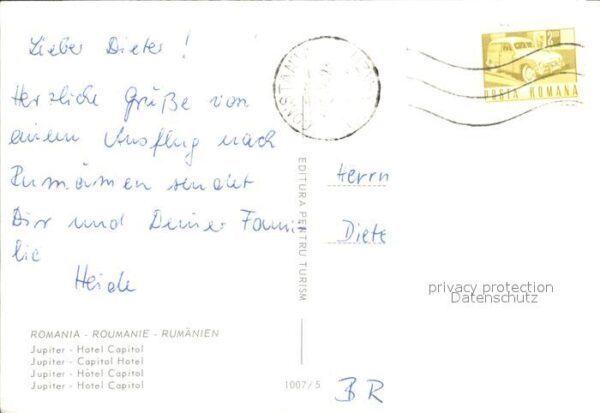 Lieber Dieter!
Herzliche Grüße von
einem Ausflug nach
Rumänien sendet
Dir und Deiner Fami-
lie
Heide
CONSTANȚA
2 LEI
POSTA ROMANA
EDITURA PENTRU TURISM
Herrn
Diete
privacy protection
Datenschutz
ROMANIA - ROUMANIE - RUMÄNIEN
Jupiter - Hotel Capitol
Jupiter - Capitol Hotel
Jupiter - Hôtel Capitol
Jupiter - Hotel Capitol
1007/5
BR